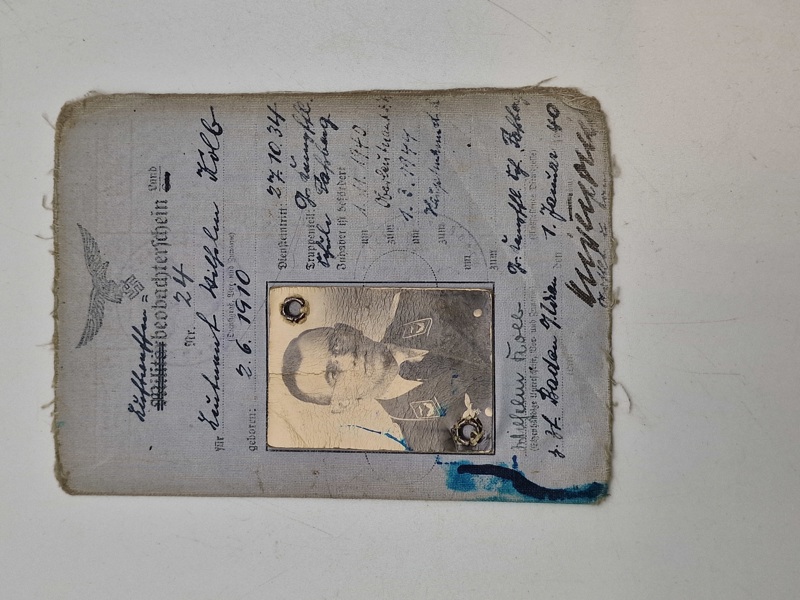 Luftwaffen=
Militärbeobachterschein Land
Nr. 24
für Leutnant Wilhelm Kolb
(Dienstgrad, Vor- und Zuname)
geboren: 2.6.1910
Diensteintritt: 27.10.34
Truppenteil: Gr. Kampffl.
Schule Faßberg
Inhaber ist befördert
am 1.11.1940
zum Oberleutnant
am 1.3.1944
zum Hauptmann d.
am
zum
Wilhelm Kolb
(Eigenhändige Unterschrift, Vor- und Zuname)
Gr. Kampffl. Sch. Faßberg
(Ausstellende Dienststelle)
z. Zt. Baden b. Wien den 1. Januar 1940